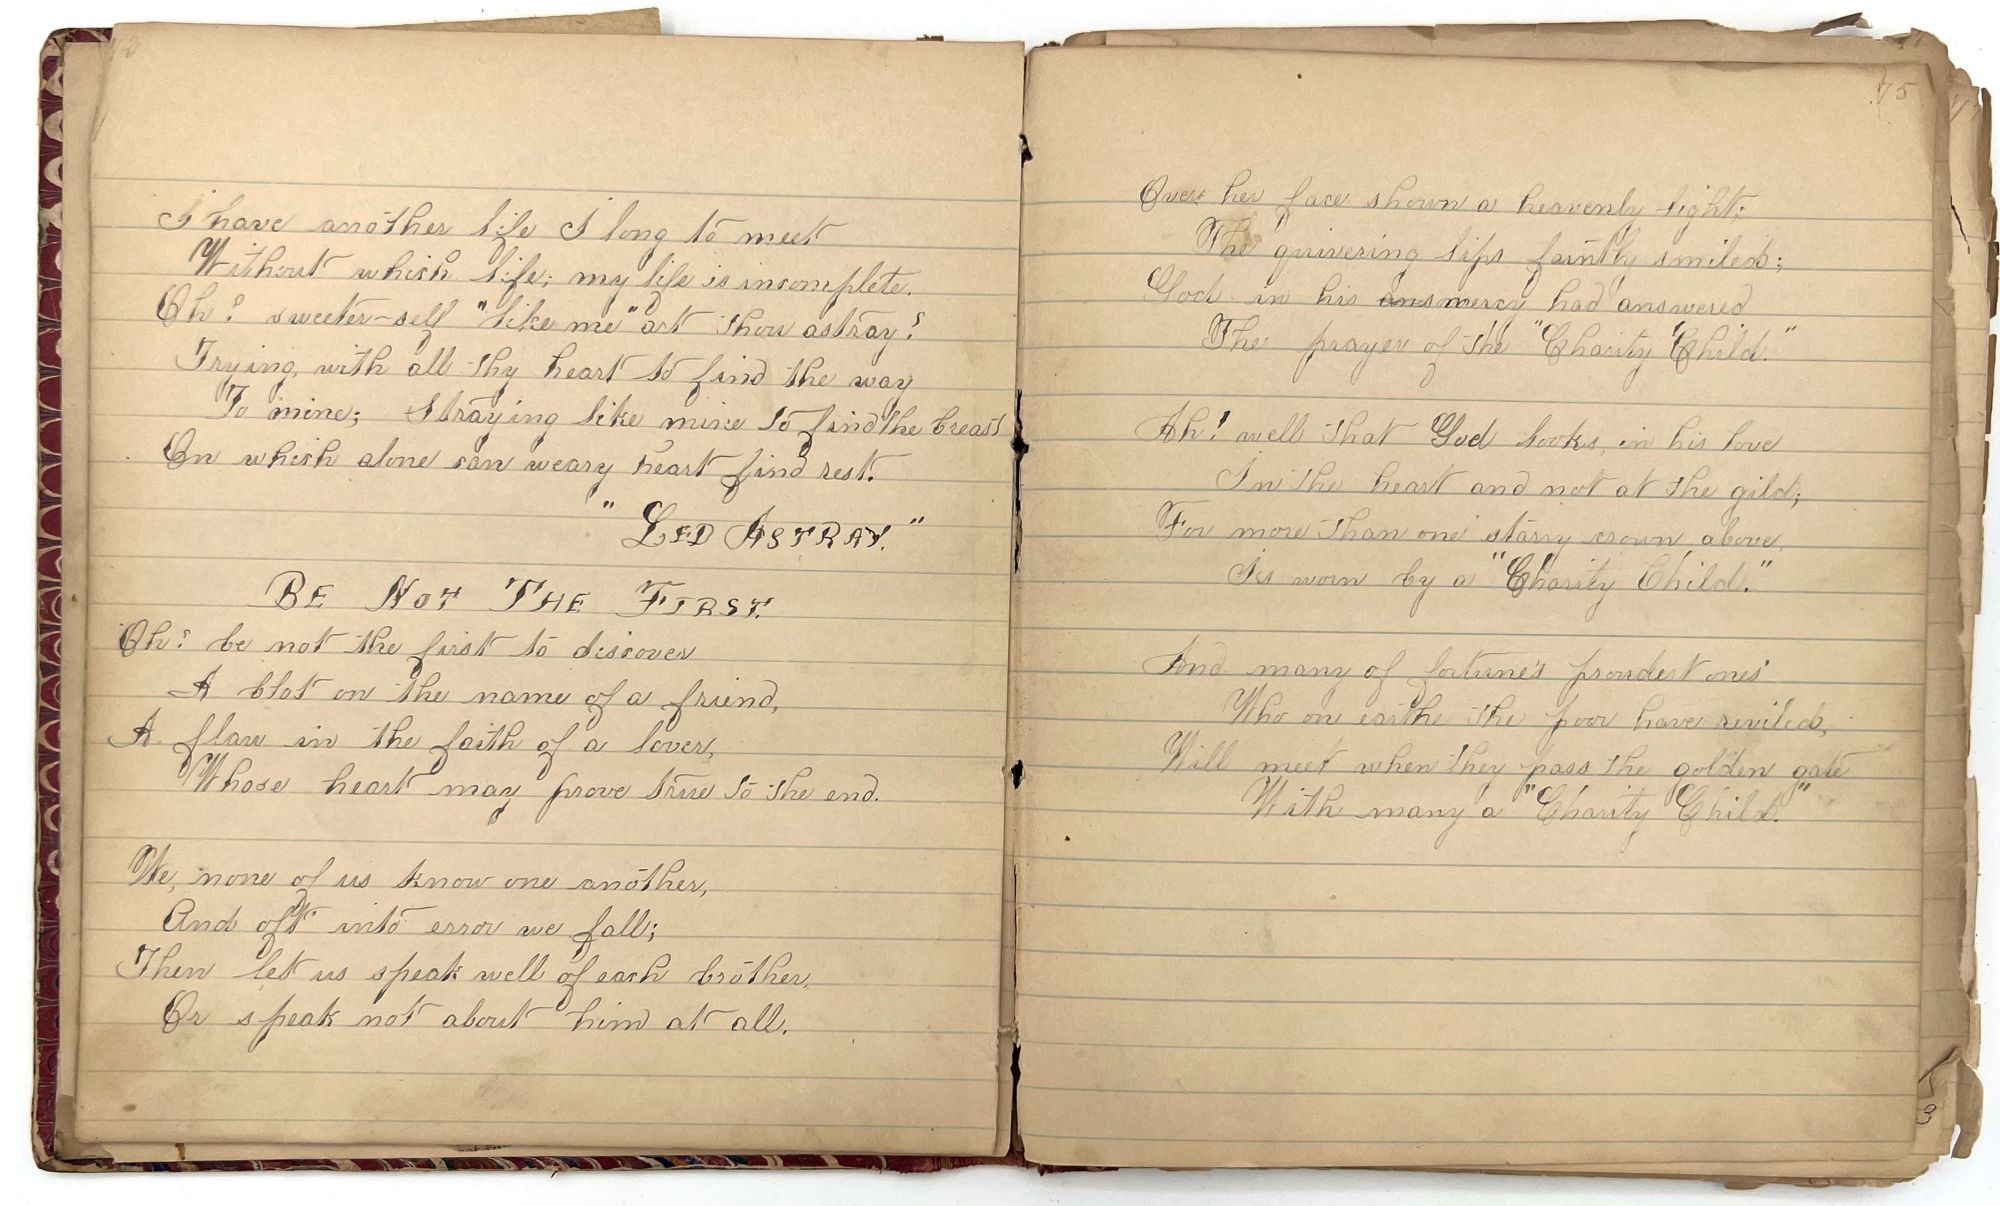 I have another life I long to meet
Without which life; my life is incomplete.
Oh! sweeter-self "like me" art thou astray!
Trying, with all thy heart to find the way
To mine; Straying like mine to find the breast
On which alone can weary heart find rest.
"LED ASTRAY."
BE NOT THE FIRST.
Oh! be not the first to discover
A blot on the name of a friend,
A flaw in the faith of a lover,
Whose heart may prove true to the end.
We, none of us know one another,
And oft into error we fall;
Then let us speak well of each brother,
Or speak not about him at all.
75
Over her face shown a heavenly light;
The quivering lips faintly smiled;
God in his ans mercy had answered
The prayer of the "Charity Child."
Ah! well that God looks, in his love
In the heart and not at the gild;
For more than one starry crown above,
Is worn by a "Charity Child."
And many of fortune's proudest ones
Who on earthe the poor have reviled,
Will meet when they pass the golden gate
With many a "Charity Child."
3